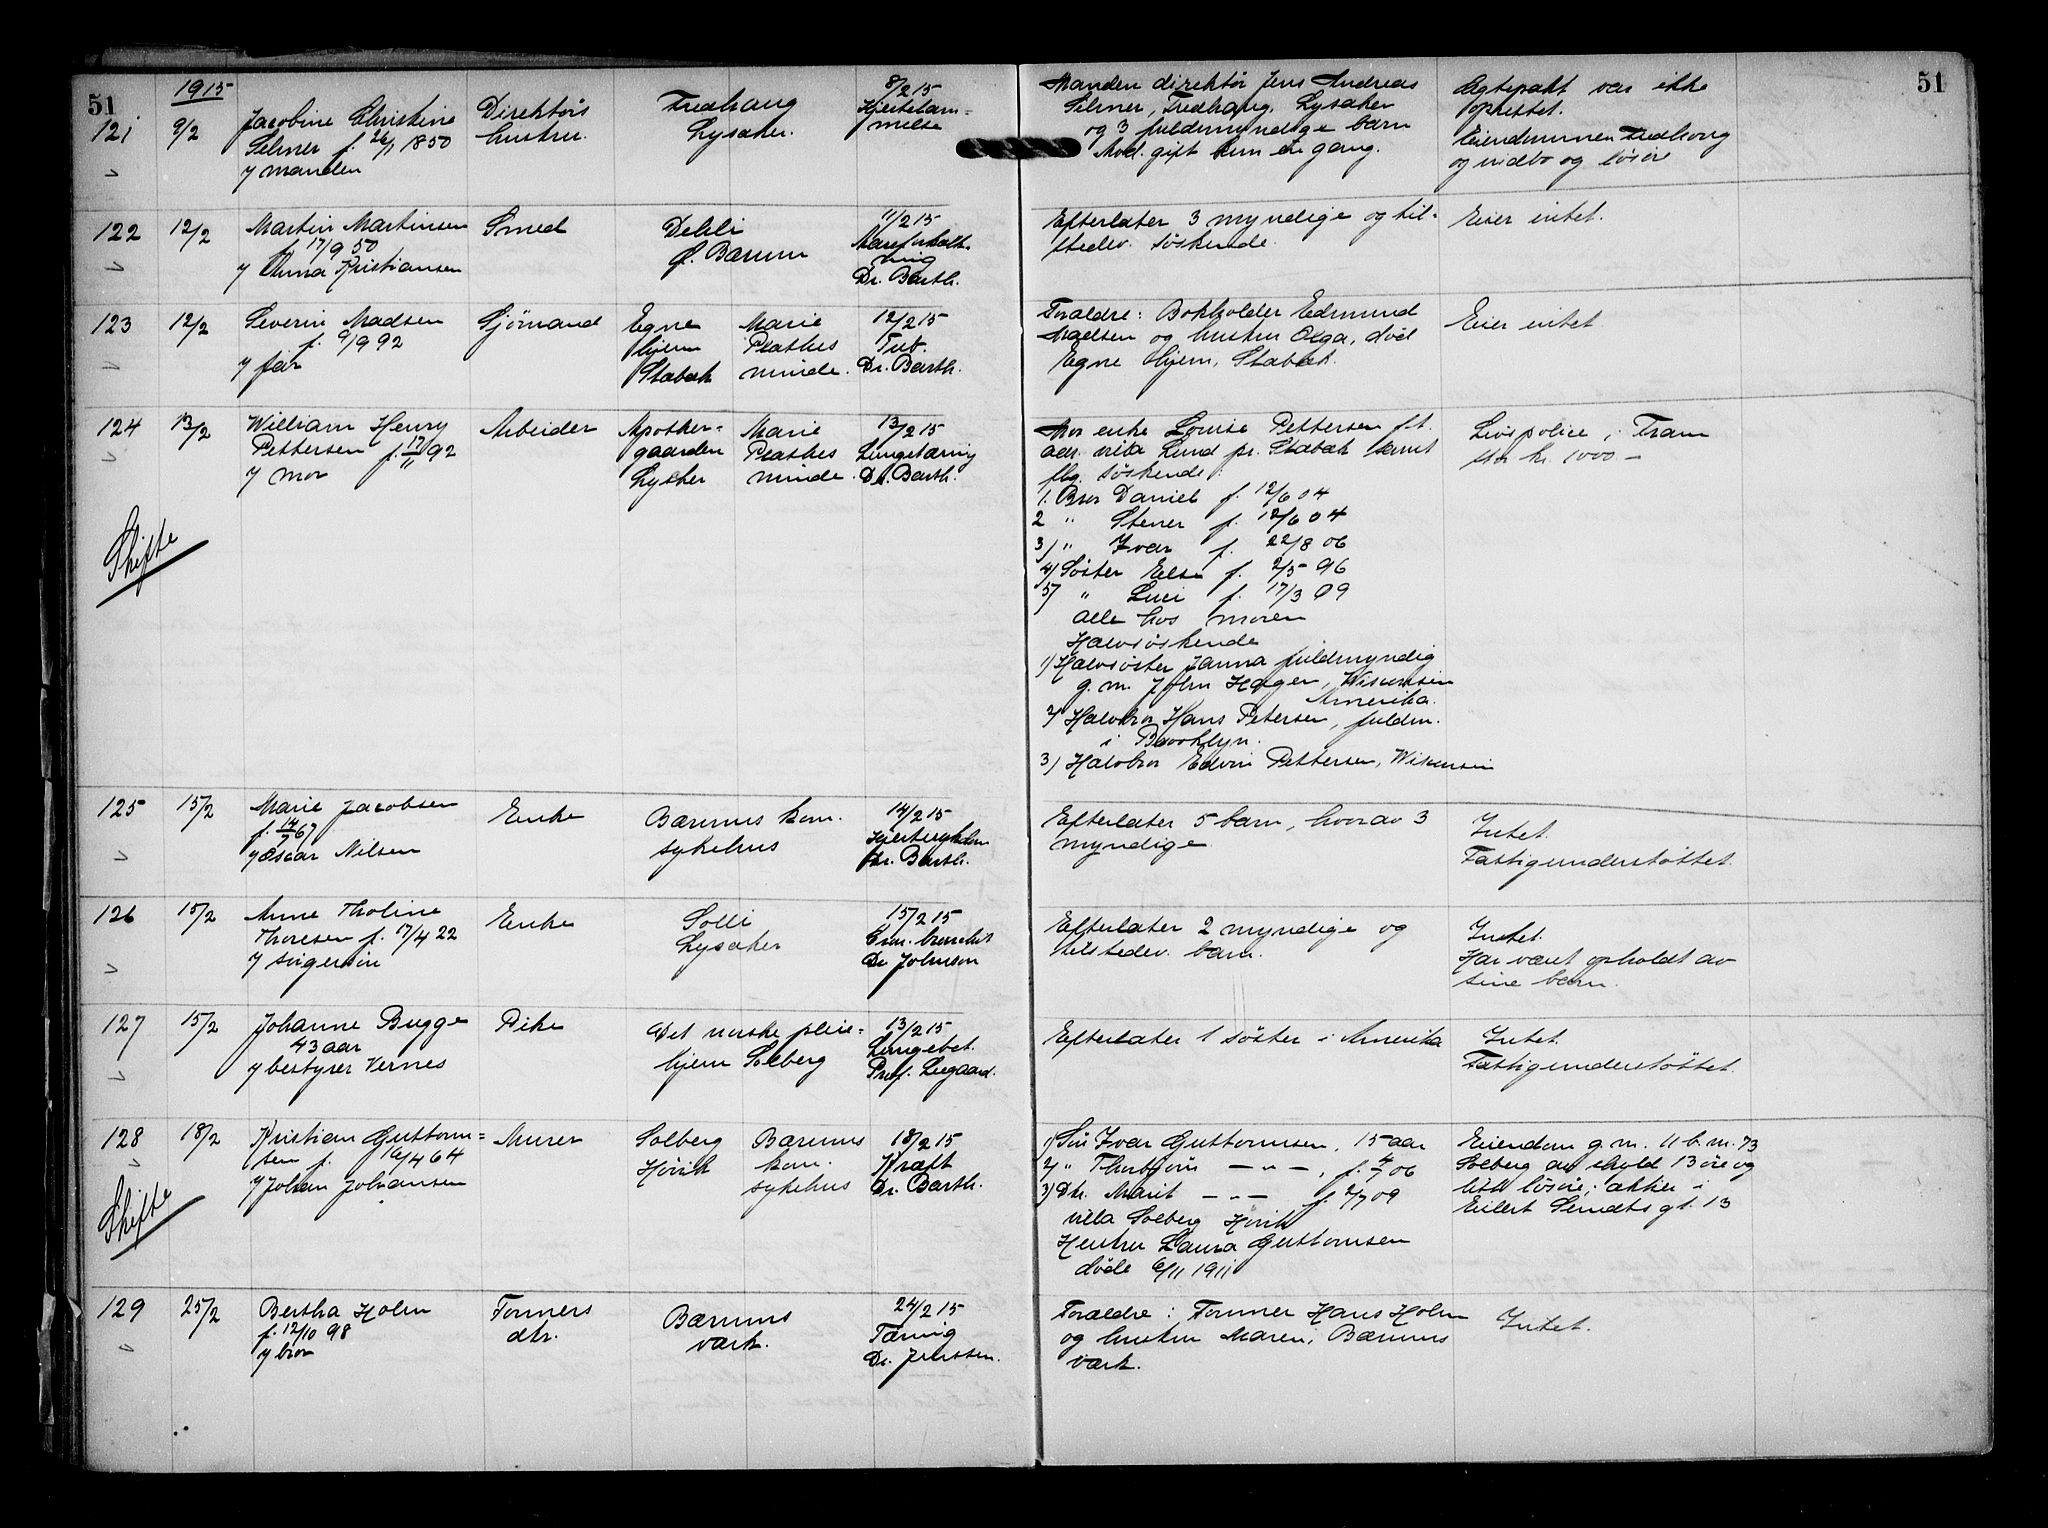 51
1915
121
9/2
Jacobine Christine
Selmer f. 26/1 1850
v/ manden
Direktørs
hustru.
Fredhaug
Lysaker.
8/2 15
Hjertelam=
melse
Manden direktør Jens Andreas
Selmer, Fredhaug, Lysaker
og 3 fuldmyndige barn
Avd. gift kun en gang.
Ægtepakt var ikke
oprettet.
Eiendommen Fredhaug
og indbo og løsøre
51
122
12/2
Martin Martinsen
f. 17/9 50
v/ Anna Kristiansen
Smed
Dehli
Ø. Bærum
11/2 15
Dr. Barth.
Efterlater 3 myndige og til=
stedev. søskende.
Eier intet.
123
12/2
Severin Madsen
f. 9/9 92
v/ far
Sjømand
Egne
Hjem
Stabæk
Marie
Plathes
minde.
12/2 15
Tub.
Dr. Barth.
Forældre: Bokholder Edmund
Madsen og hustru Olga, død
Egne Hjem, Stabæk.
Eier intet
124
13/2
William Henry
Pettersen f. 17/11 92
v/ mor
Arbeider
Apoteker=
gaarden
Lysaker
Marie
Plathes
minde.
13/2 15
Lungetæring
Dr. Barth.
Skifte
Mor enke Louise Pettersen ft.
adr. villa Lund pr. Stabæk samt
flg. søskende:
1. Bror Daniel f. 12/6 04
2 " Stener f. 12/6 04
3) " Ivar f. 22/8 06
4) Søster Else f. 2/5 96
5) " Luci f. 17/3 09
alle hos moren
Halvsøskende
1) Halvsøster Janna fuldmyndig
g. m. John Hagen, Wisconsin
Amerika.
2) Halvbror Hans Petersen, fuldm.
i Brooklyn.
3) Halvbror Edvin Pettersen, Wisconsin
Livspolice i Fram
stor kr. 1000.-
125
15/2
Marie Jacobsen
f. 14/7 67
v/ Oscar Nilsen
Enke
Bærums kom.
sykehus
14/2 15
Dr. Barth.
Efterlater 5 barn, hvorav 3
myndige
Intet.
Fattigunderstøttet.
126
15/2
Anne Tholine
Thoresen f. 17/4 22
v/ svigersøn
Enke
Solli
Lysaker
15/2 15
Dr Johnson
Efterlater 2 myndige og
tilstedev. barn.
Intet.
Har været opholdt av
sine barn.
127
15/2
Johanne Bugge
43 aar
v/ bestyrer Vernes
Pike
Det norske pleie=
hjem Solberg
13/2 15
Lungebet.
Prof. Laegaard.
Efterlater 1 søster i Amerika
Intet.
Fattigunderstøttet.
128
18/2
Kristian Guttorm=
sen f. 16/4 64
v/ Johan Johansen
Murer
Solberg
Høvik
Bærums
kom.
sykehus
18/2 15
Kræft
Dr. Barth.
Skifte
1) Søn Ivar Guttormsen, 15 aar
2) " Thorbjørn — " —, f. 4/7 06
3) Dtr. Marit — " — f. 2/7 09
villa Solberg Høvik
Hustru Laura Guttormsen
døde 6/11 1911
Eiendom g. nr. 11 b. nr. 73
Solberg av skyld 13 øre og
litt løsøre; aktier i
Eilert Sundts gt. 13
129
25/2
Bertha Holm
f. 12/10 98
v/ bror
Formers
dtr.
Bærums
værk.
24/2 15
Tæring
Dr. Janssen.
Forældre: Former Hans Holm
og hustru Maren, Bærums
værk.
Intet.